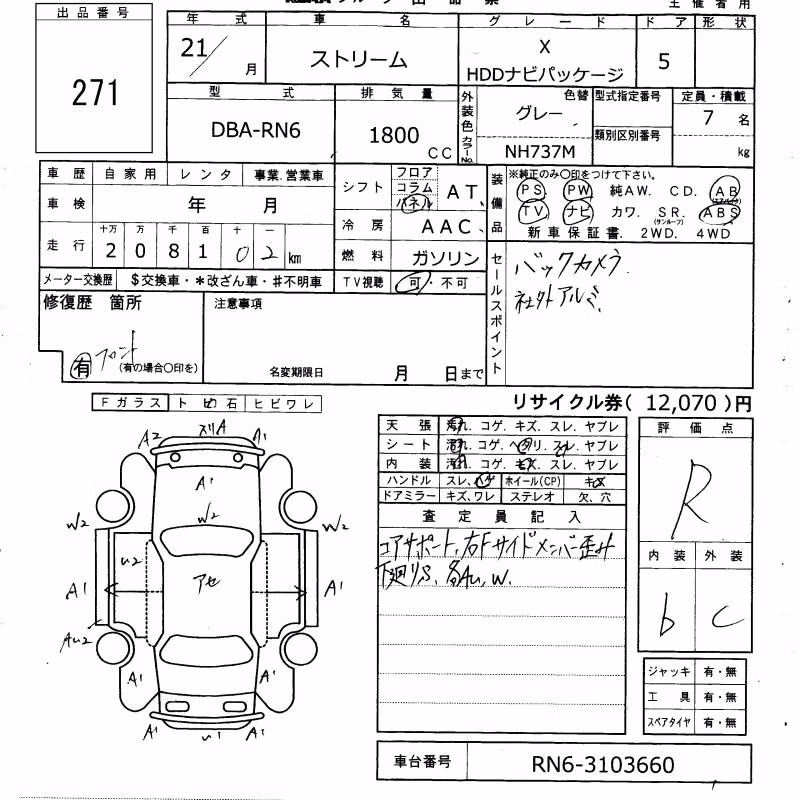 出品番号
271
年式 車名 グレード ドア 形状
21/ 月 ストリーム X HDDナビパッケージ 5
型式 排気量 外装色 色替 型式指定番号 定員・積載
DBA-RN6 1800 CC グレー 7 名
カラーNo. NH737M 類別区別番号 kg
車歴 自家用 レンタ 事業.営業車
車検 年 月
走行 十万 万 千 百 十 一
2 0 8 1 0 2 km
メーター交換歴 $交換車・*改ざん車・#不明車
シフト フロア コラム パネル AT、
冷房 AAC、
燃料 ガソリン
TV視聴 可・不可
装備品 ※純正のみ〇印をつけて下さい。
PS PW 純AW. CD. AB
TV ナビ カワ. SR. ABS
(サンルーフ)
新車保証書. 2WD. 4WD
セールスポイント
バックカメラ
社外アルミ
修復歴 箇所
有 フロント (有の場合〇印を)
注意事項
名変期限日 月 日まで
リサイクル券( 12,070 )円
Fガラス トび石 ヒビワレ
天張 汚れ. コゲ. キズ. スレ. ヤブレ
シート 汚れ. コゲ. ヘタリ. スレ. ヤブレ
内装 汚れ. コゲ. キズ. スレ. ヤブレ
ハンドル スレ、ハゲ ホイール(CP) キズ
ドアミラー キズ、ワレ ステレオ 欠、穴
査定員記入
コアサポート、右Fサイドメンバー歪み
下廻りS、各Au、W.
評価点
R
内装 外装
b c
ジャッキ 有・無
工具 有・無
スペアタイヤ 有・無
A2 スリA A1
A1
W2
W2 W2
U2
アセ
A1 A1
AU2
A1 A1
A1 U1 A1
車台番号 RN6-3103660